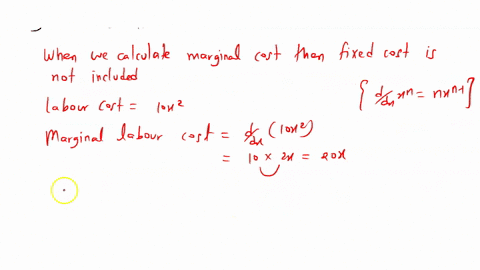 When we calculate marginal cost than fixed cost is
not included
{ d/dx xⁿ = nxⁿ⁻¹
Labour cost = 10x²
Marginal labour cost = d/dx (10x²)
= 10 × 2x = 20x